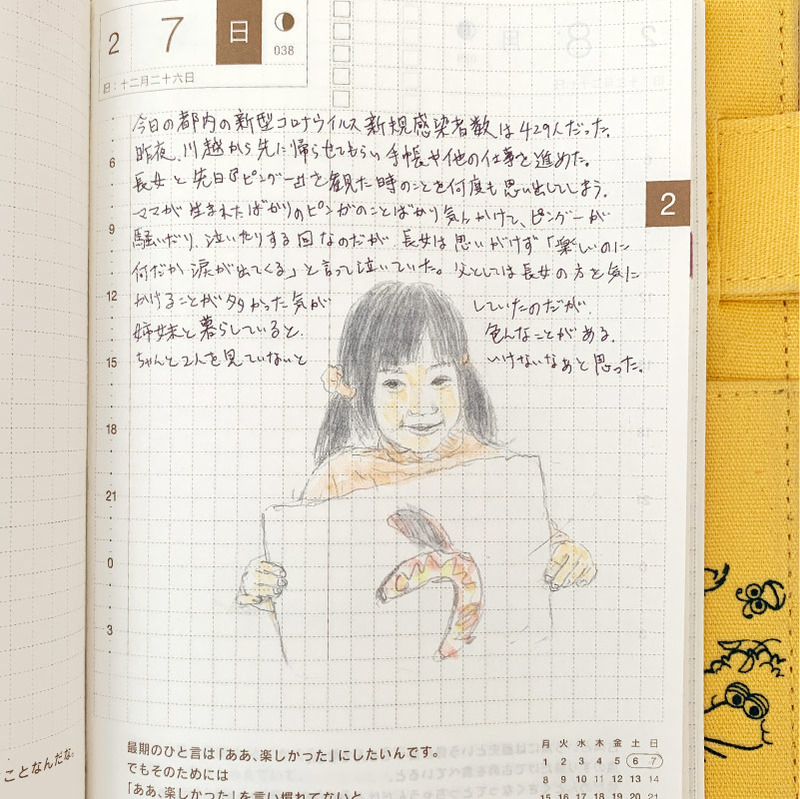 2 7 日
038
旧:十二月二十六日
今日の都内の新型コロナウイルス新規感染者数は429人だった。
昨夜、川越から先に帰らせてもらい手帳や他の仕事を進めた。
長女と先日『ピングー』を観た時のことを何度も思い出してしまう。
ママが生まれたばかりのピンガのことばかり気にかけて、ピングーが
騒いだり、泣いたりする回なのだが、長女は思いがけず「楽しいのに
何だか涙が出てくる」と言って泣いていた。父としては長女の方を気に
かけることが多かった気が していたのだが、
姉妹と暮らしていると、 色んなことがある。
ちゃんと2人を見ていないと いけないなあと思った。
6
9
12
15
18
21
0
3
2
う
最期のひと言は「ああ、楽しかった」にしたいんです。
でもそのためには
「ああ、楽しかった」を言い慣れてないと
月 火 水 木 金 土 日
1 2 3 4 5 6 7
8 9 10 11 12 13 14
15 16 17 18 19 20 21
ことなんだな。